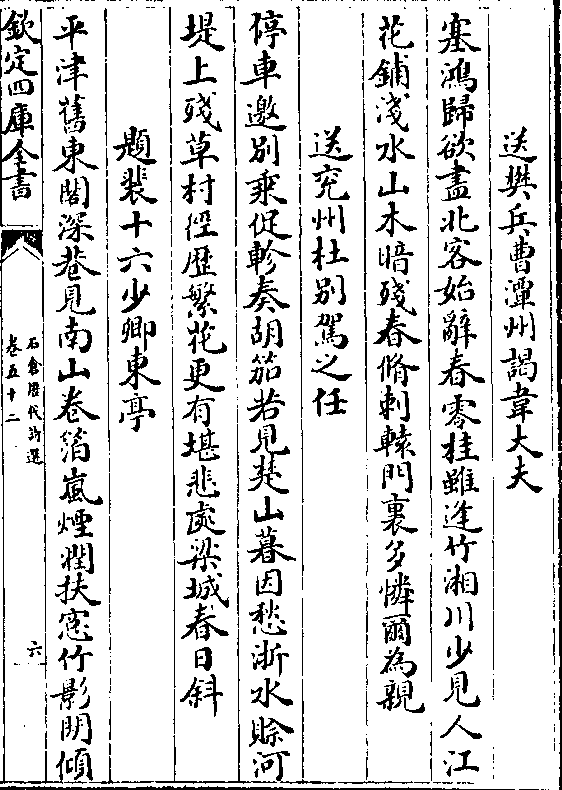 送樊兵曹潭州謁韋大夫
塞鴻歸欲盡北客始辭春零桂雖逢竹湘川少見人江
花鋪淺水山木暗殘春脩刺轅門裏多憐爾為親
送兖州杜别駕之任
停車邀别乗促軫奏胡笳若見楚山暮因愁浙水賖河
堤上殘草村徑歴繁花更有堪悲處梁城春日斜
題裴十六少卿東亭
平津舊東閣深巷見南山卷箔嵐煙潤扶窓竹影閒傾
欽定四庫全書
石倉歴代詩選
卷五十二
六